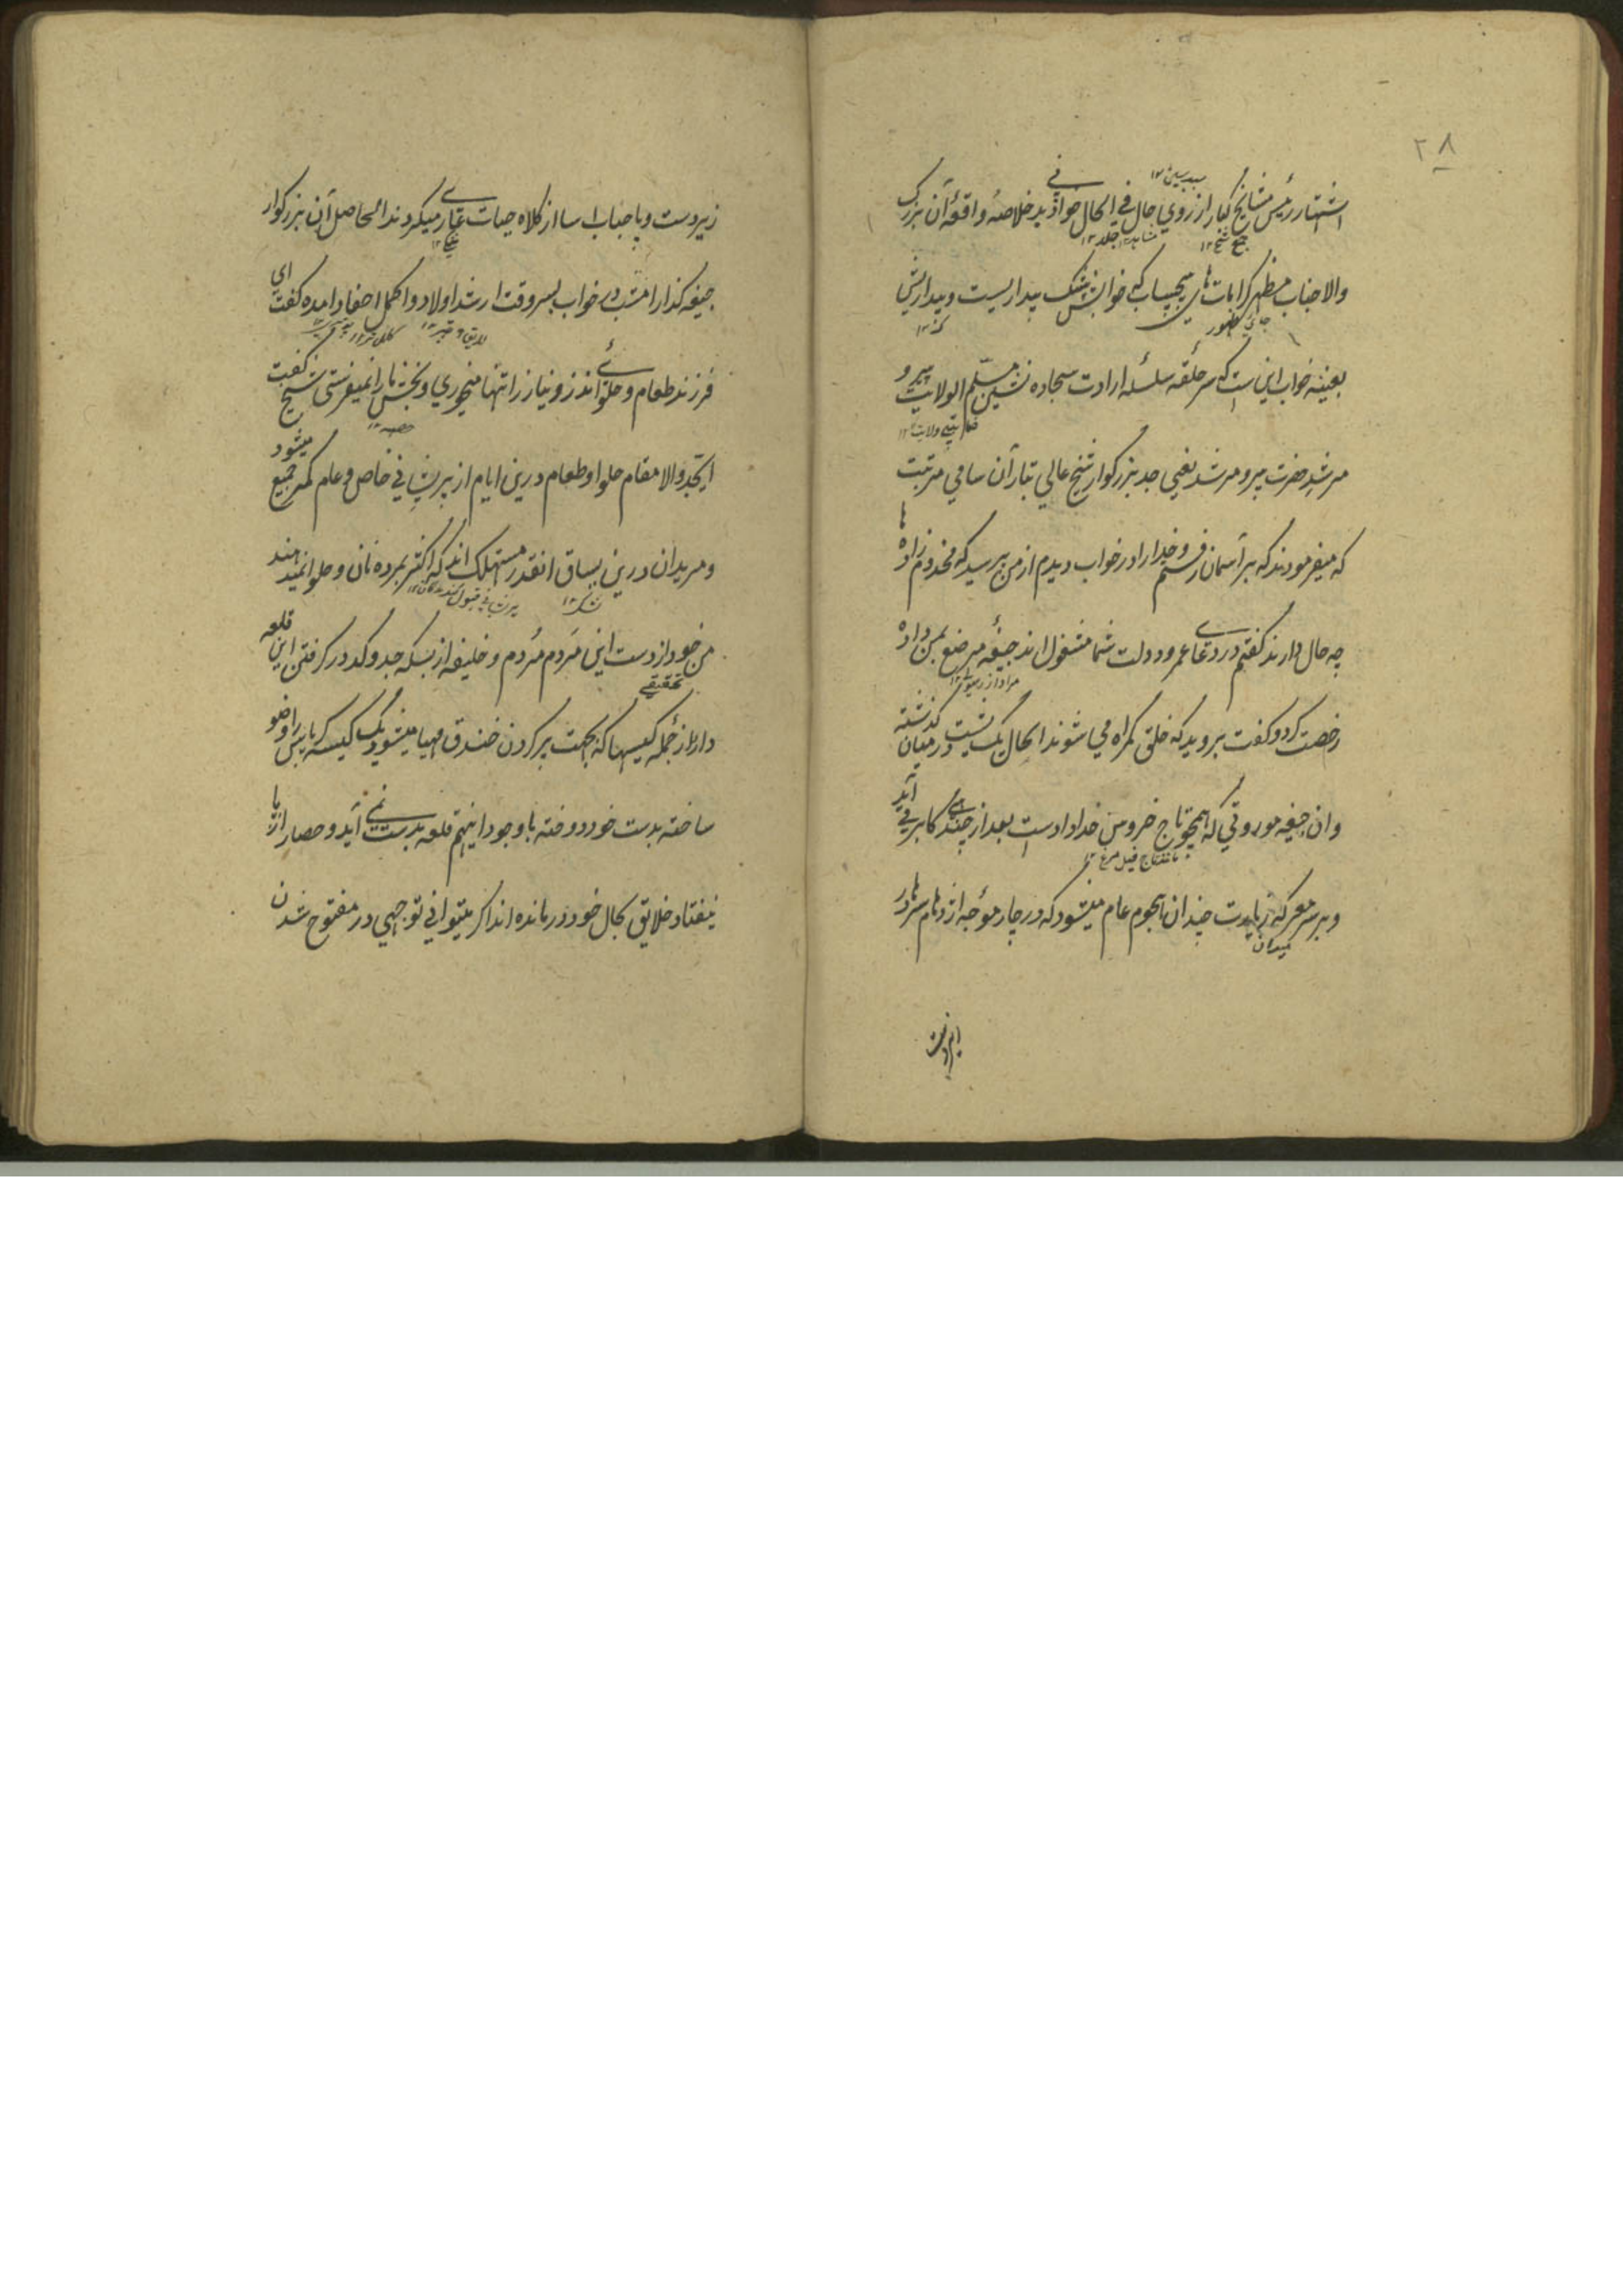 ۲۸
اشتهار رئیس مشایخ کبار از روی حال فی الحال خلاصهٔ واقعهٔ آن بزرگ
والا جناب مظهر کرامات های بیحساب که خوابش بیشک بیداریست و بیداریش
بعینه خواب این ست که سر حلقه سلسلهٔ ارادت سجاده نشین مسلم الولایت پیر و
مرشد حضرت پیر و مرشد یعنی جد بزرگوار شیخ عالی تبار آن سامی مرتبت
که میفرمودند که بر آسمان رفتم و خدا را در خواب دیدم از من پرسید که مخدوم زاده ها
چه حال دارند گفتم در دعای عمر و دولت شما مشغول اند جیغهٔ مرصع بمن داده
رخصت کرد و گفت بروید که خلق گمراه می شوند الحال یک پشت در میان گذشته
و آن جیغه موروثی که همچو تاج خروس خداداد است بعد از چندی گاه بر می آید
و بر سر معرکه زیارت چندان هجوم عام میشود که در چار موجه ازدحام سرها در
زیر دست و پا حباب آسا از کلاه حیات عاری میکردند الحاصل آن بزرگوار
جیغه گذار امشب در خواب بسر وقت ارشد اولاد و اکمل احفاد آمده گفت ای
فرزند طعام و حلوای نذر و نیاز را تنها میخوری و بخش ما را نمیفرستی شیخ گفت
ای جد والا مقام حلوا و طعام درین ایام از پریشانی خاص و عام کمتر جمع میشود
و مریدان درین یساق آنقدر مستهلک اند که اکثر بمرده نان و حلوا نمیدهند
من خود از دست این مردم مردم و خلیفه از بسکه جد و کد در گرفتن این قلعه
دارد از جمله کیسها که بجهت پر کردن خندق مهیا میشود یک کیسه کرباس را وضو
ساخته بدست خود دوخته با وجود اینهم قلعه بدست نمی آید و حصار از پا
نیفتاد خلایق بحال خود در مانده اند اگر میتوانی توجهی در مفتوح شدن